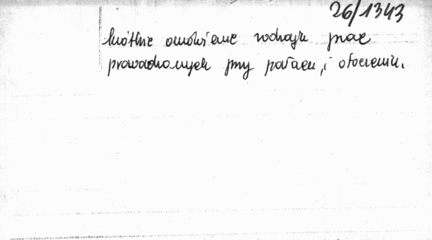 26/1343
krótkie omówienie rodzaju prac
prowadzonych przy pałacu i otoczeniu.